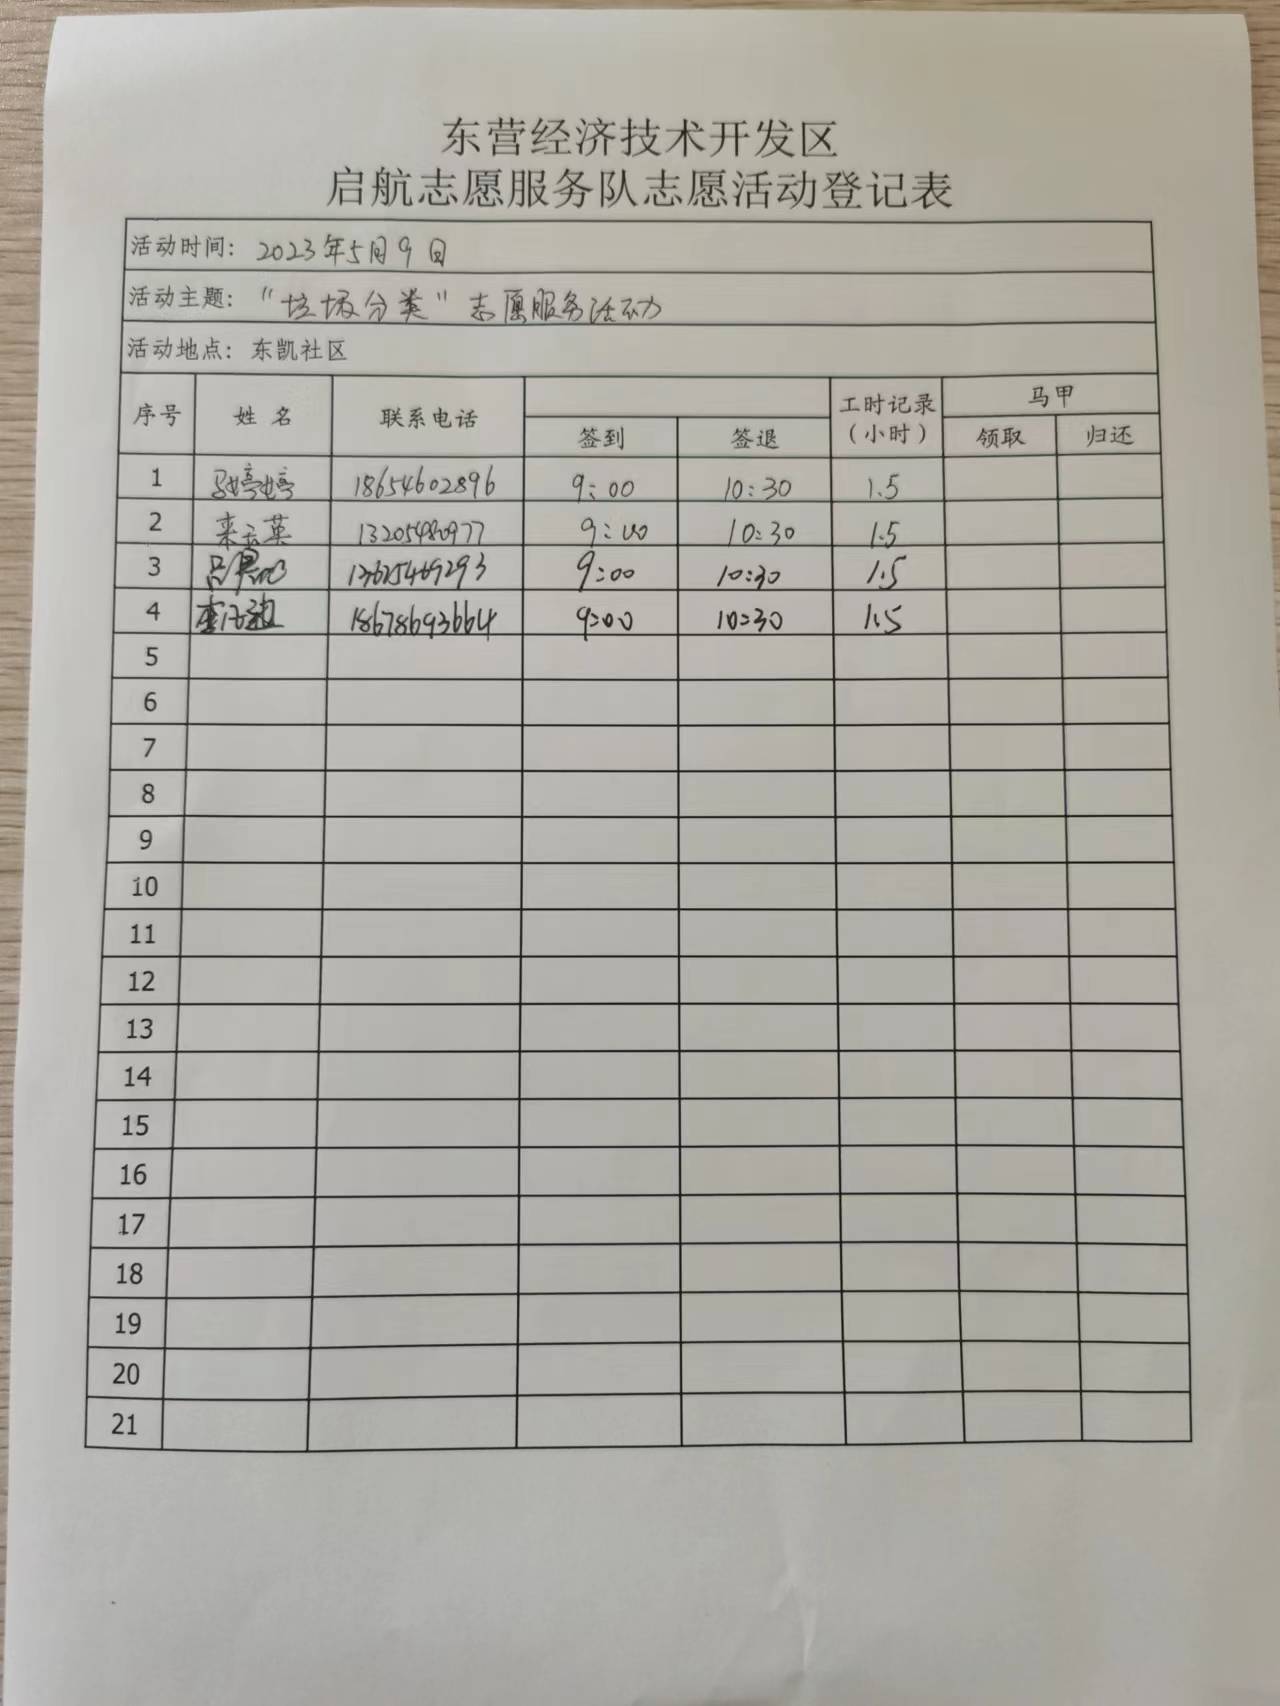 东营经济技术开发区
启航志愿服务队志愿活动登记表
活动时间：2023年5月9日
活动主题：“垃圾分类”志愿服务活动
活动地点：东凯社区
序号 姓名 联系电话 签到 签退 工时记录（小时） 马甲 领取 归还
1 婷婷 18654602896 9:00 10:30 1.5
2 英 13205480977 9:00 10:30 1.5
3 吕 13625469293 9:00 10:30 1.5
4 李 18678693664 9:00 10:30 1.5
5
6
7
8
9
10
11
12
13
14
15
16
17
18
19
20
21